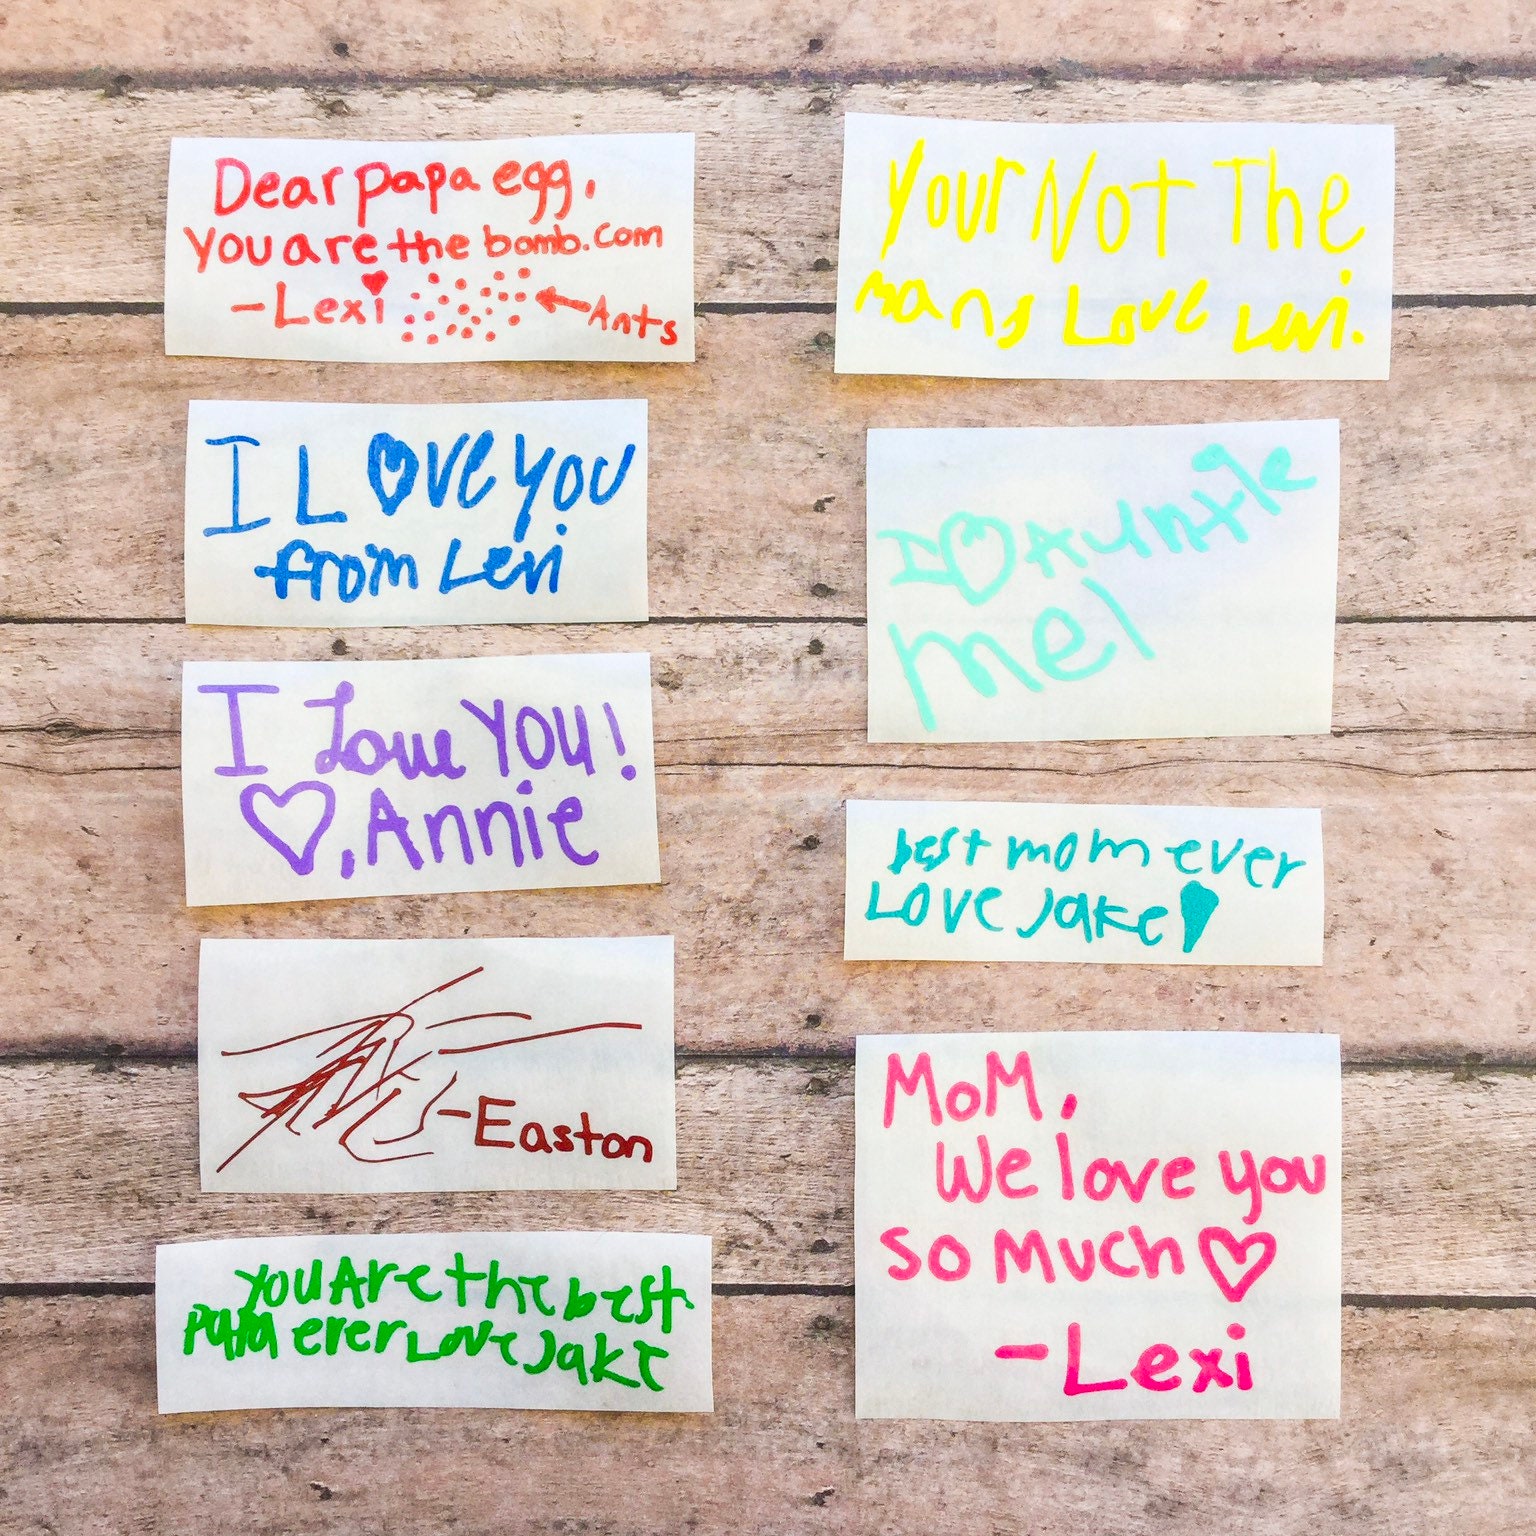 Dear papa egg,
You are the bomb.com
-Lexi
←Ants
I LOVE YOU
from Levi
I Love YOU!
♡, Annie
-Easton
YOU Are the best
Papa ever Love Jake
Your Not The
mans Love Levi.
I ♡ Auntie
Mel
best mom ever
Love Jake
MOM,
We love you
so Much ♡
-Lexi